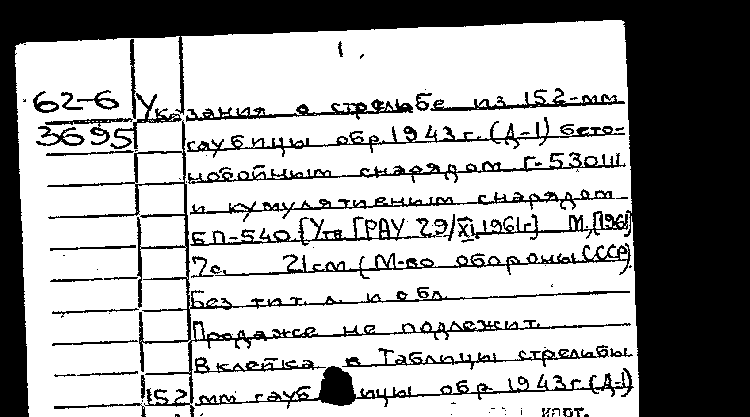 1.
62-6 Указания о стрельбе из 152-мм
3695 гаубицы обр. 1943 г. (Д-1) бето-
нобойным снарядом Г-530Ш
и кумулятивным снарядом
БП-540. [Утв. ГРАУ 29/XI.1961г.] М., [1961]
7с. 21см (М-во обороны СССР).
Без тит. л. и обл.
Продаже не подлежит.
Вклейка в Таблицы стрельбы
152 мм гаубицы обр. 1943 г (Д-1)